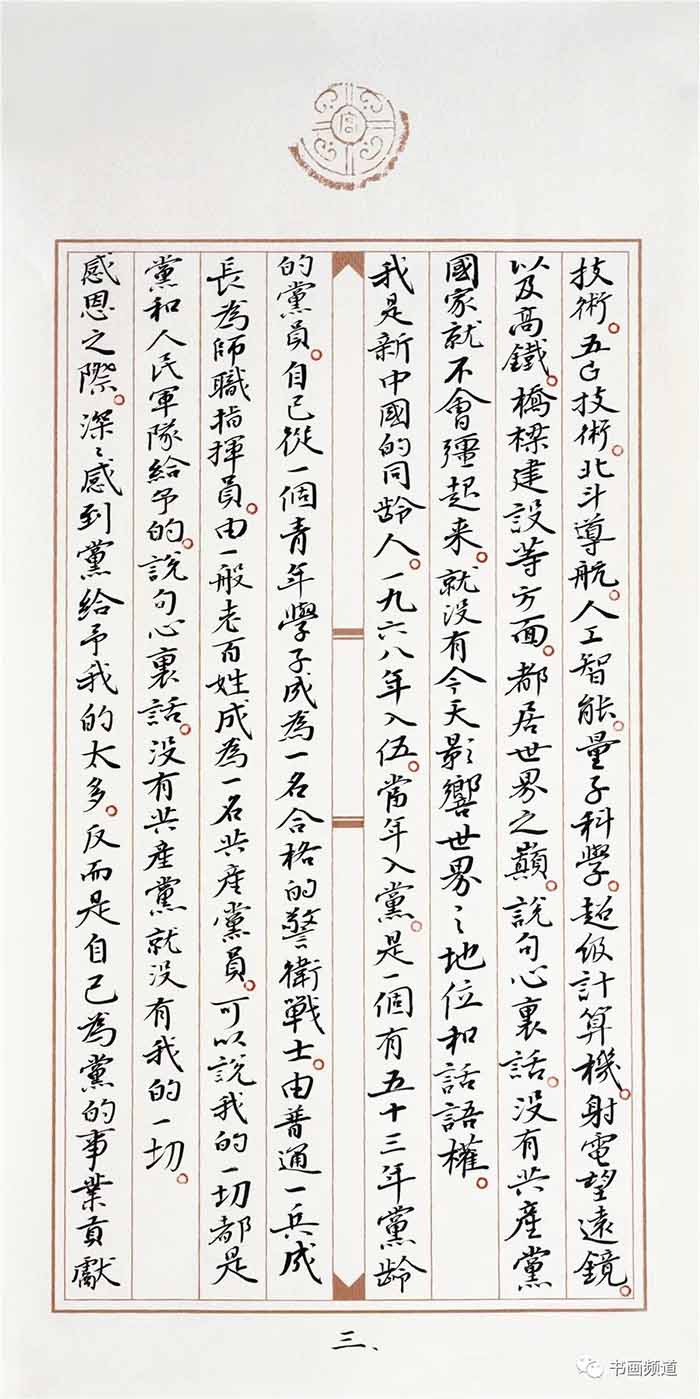 技術。五G技術。北斗導航。人工智能。量子科學。超级計算機。射電望遠鏡。
以及高鐵。橋樑建設等方面。都居世界之巔。說句心裏話。没有共産黨
國家就不會彊起来。就没有今天影響世界之地位和話語權。
我是新中國的同齡人。一九六八年入伍。當年入黨。是一個有五十三年黨龄
的黨員。自己從一個青年學子成為一名合格的警衛戰士。由普通一兵成
長為師職指揮員。由一般老百姓成為一名共産黨員。可以說我的一切都是
黨和人民軍隊給予的。說句心裏話。没有共産黨就没有我的一切。
感恩之際。深〻感到黨給予我的太多。反而是自己為黨的事業貢獻
三、
书画频道